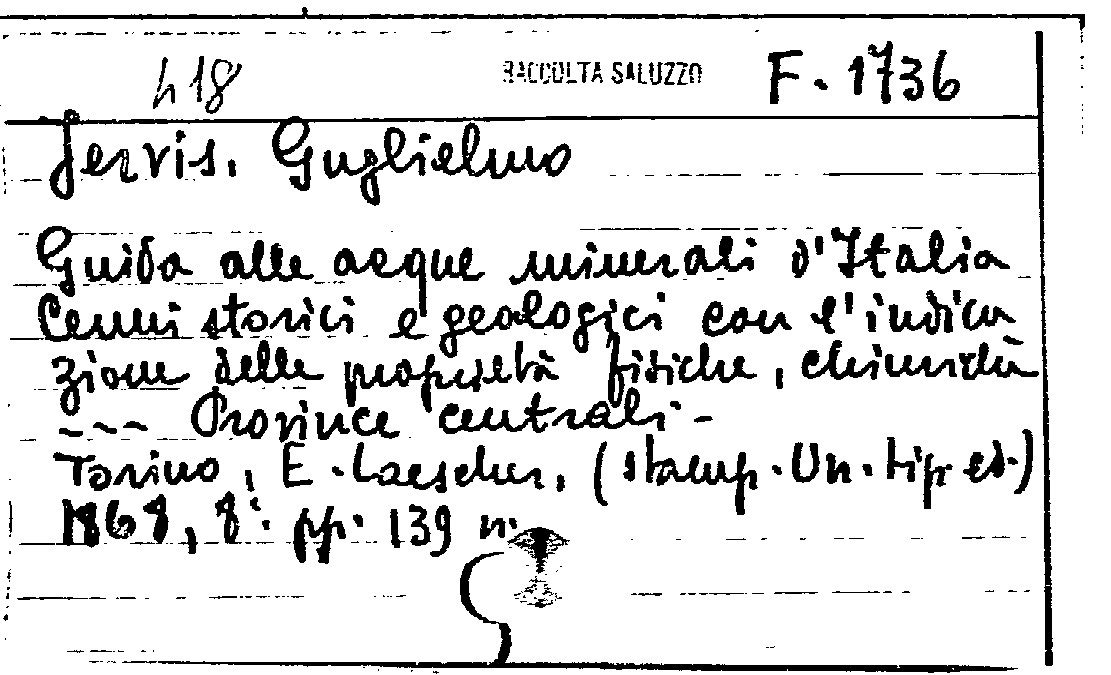 h 18 RACCOLTA SALUZZO F. 1736
Jervis. Guglielmo
Guida alle acque minerali d'Italia
Cenni storici e geologici con l'indica
zione delle proprietà fisiche, chimiche
--- Province centrali -
Torino, E. Loescher, (stamp. Un. tip. ed.)
1868, 8°. pp. 139 n.